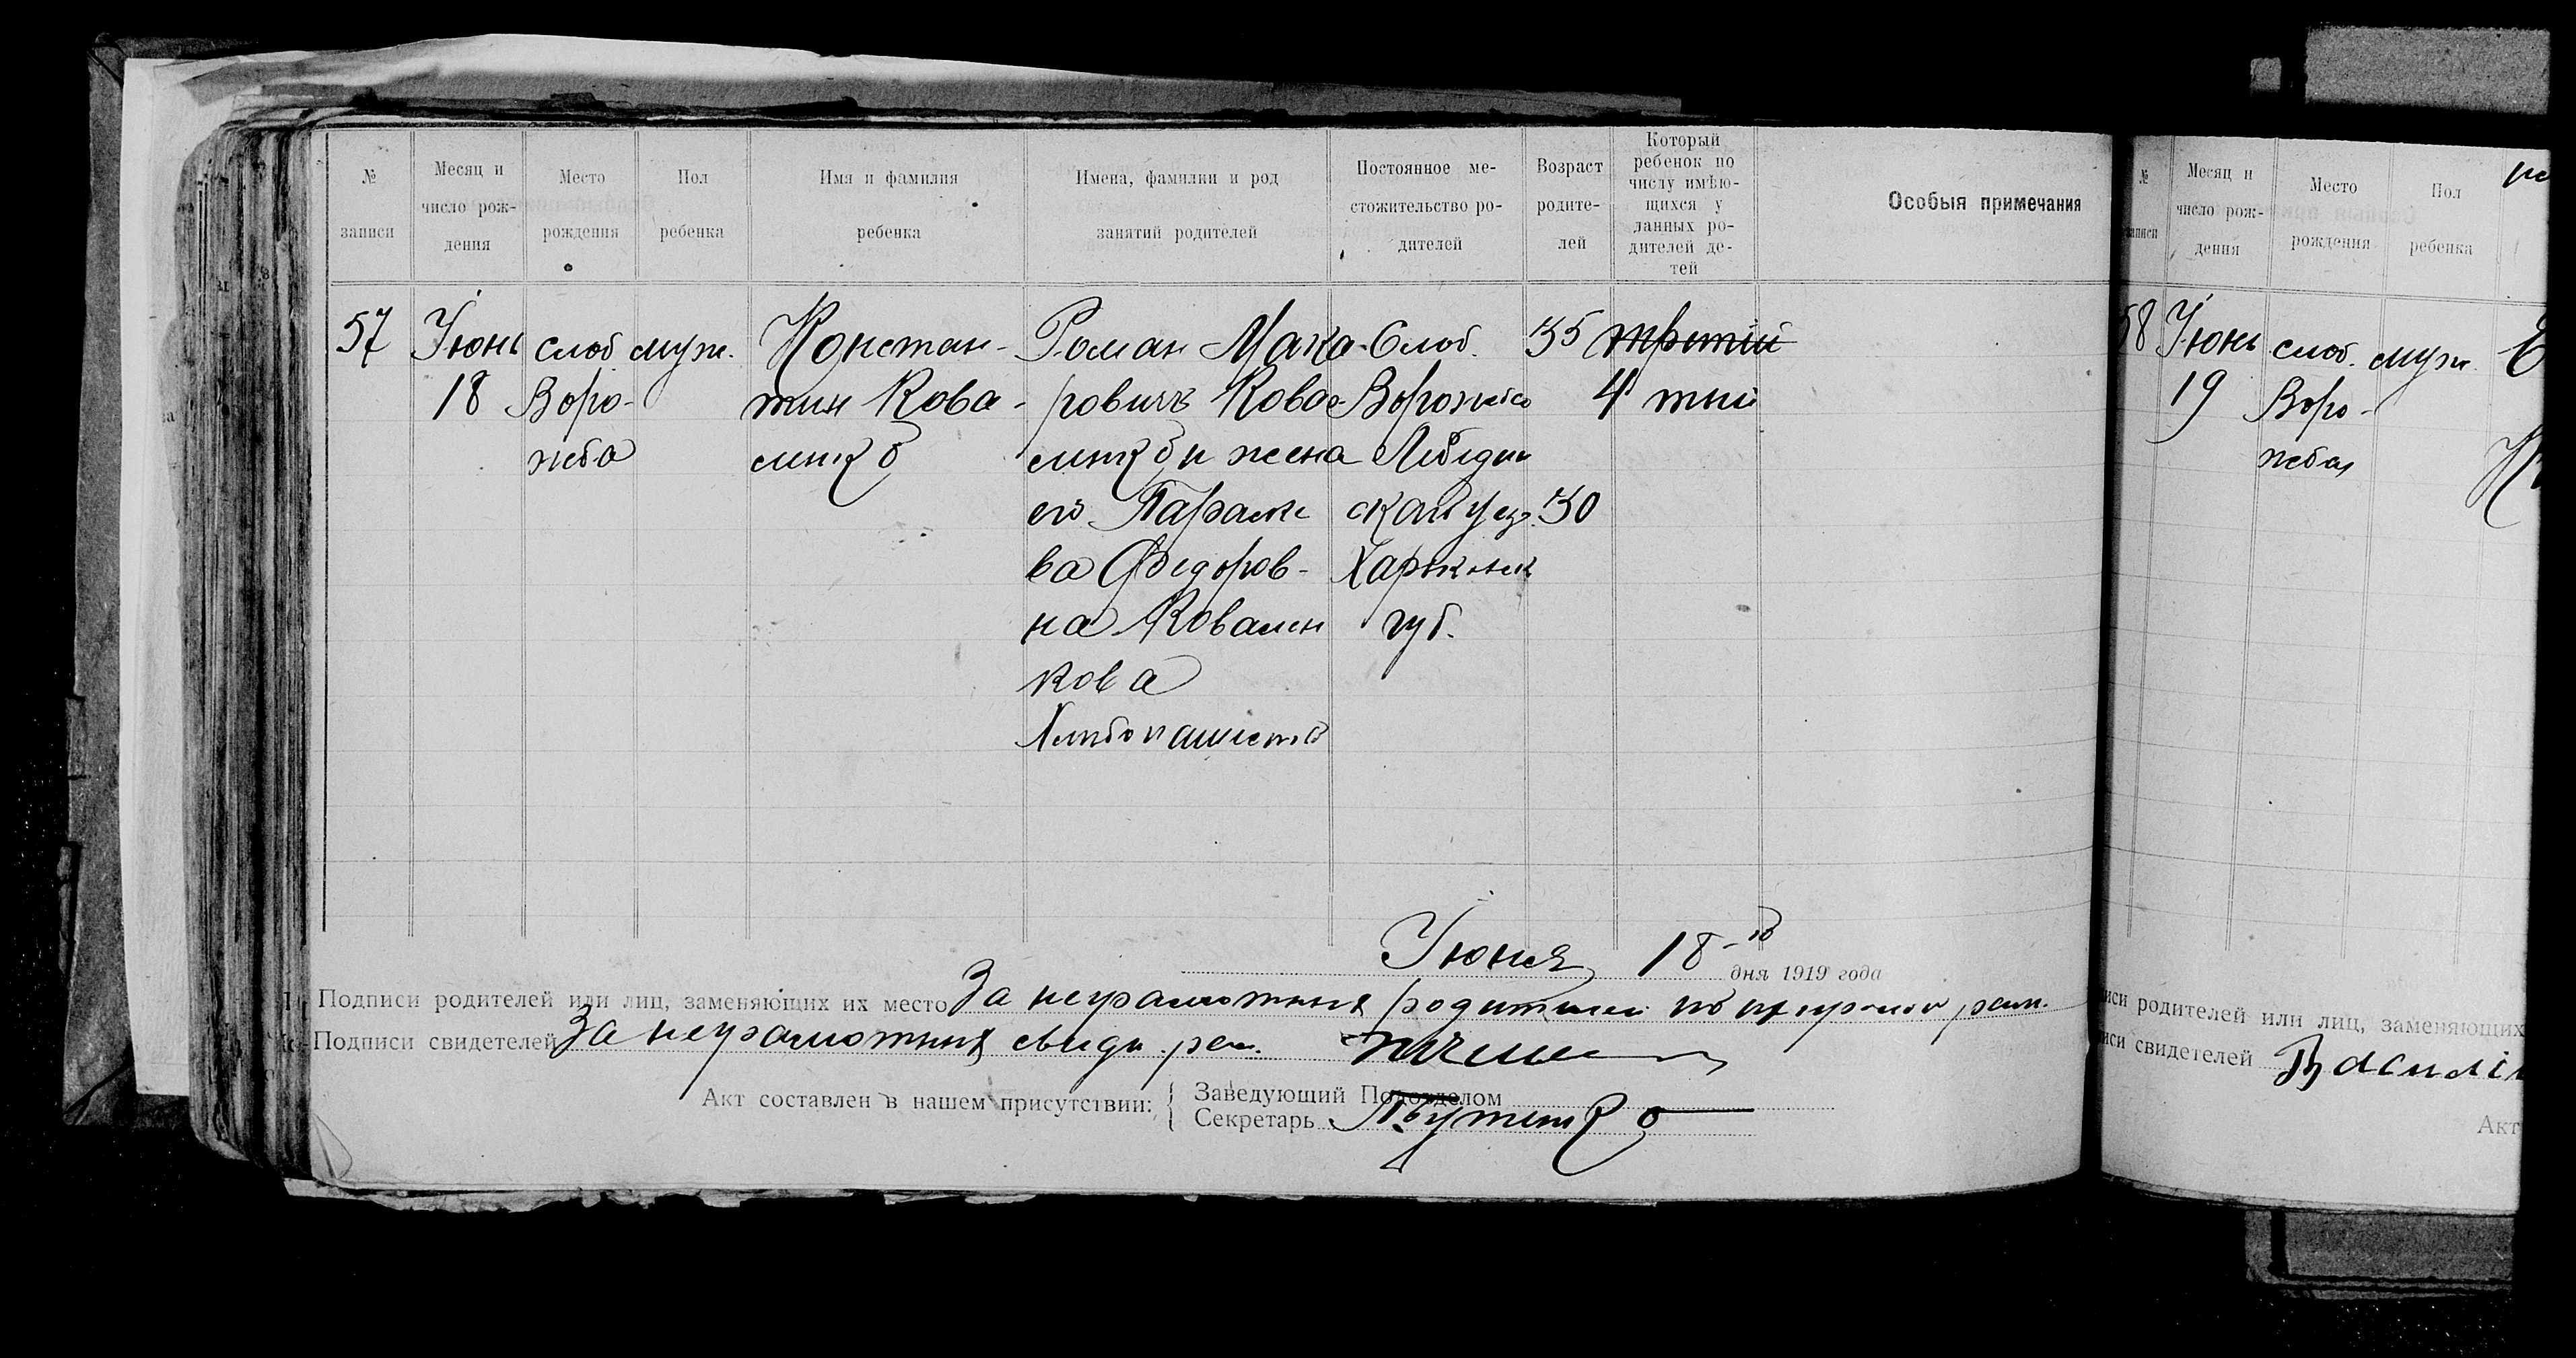 № записи
Месяц и число рождения
Место рождения
Пол ребенка
Имя и фамилия ребенка
Имена, фамилии и род занятий родителей
Постоянное местожительство родителей
Возраст родителей
Который ребенок по числу имѣющихся у данных родителей детей
Особыя примечания
57
Iюнь
18
слоб
Воро-
жба
муж.
Констан-
тин Кова-
ленко
Роман Мака-
ровичъ Кова-
ленко и жена
его Параске
ва Федоров-
на Ковален
кова
Хлебопашество
Слоб.
Ворожба
Лебедин
скаго уез.
Харьковск
губ.
35
30
третий
4 тый
Iюня 18-го дня 1919 года
Подписи родителей или лиц, заменяющих их место За неграмотных родителей по их просьбе
Подписи свидетелей За неграмотных свид.
Акт составлен в нашем присутствии:
Заведующий Подотделом
Секретарь
№ записи
Месяц и число рождения
Место рождения
Пол ребенка
58
Iюнь
19
слоб.
Воро-
жба
муж
иси родителей или лиц, заменяющих
иси свидетелей
Акт